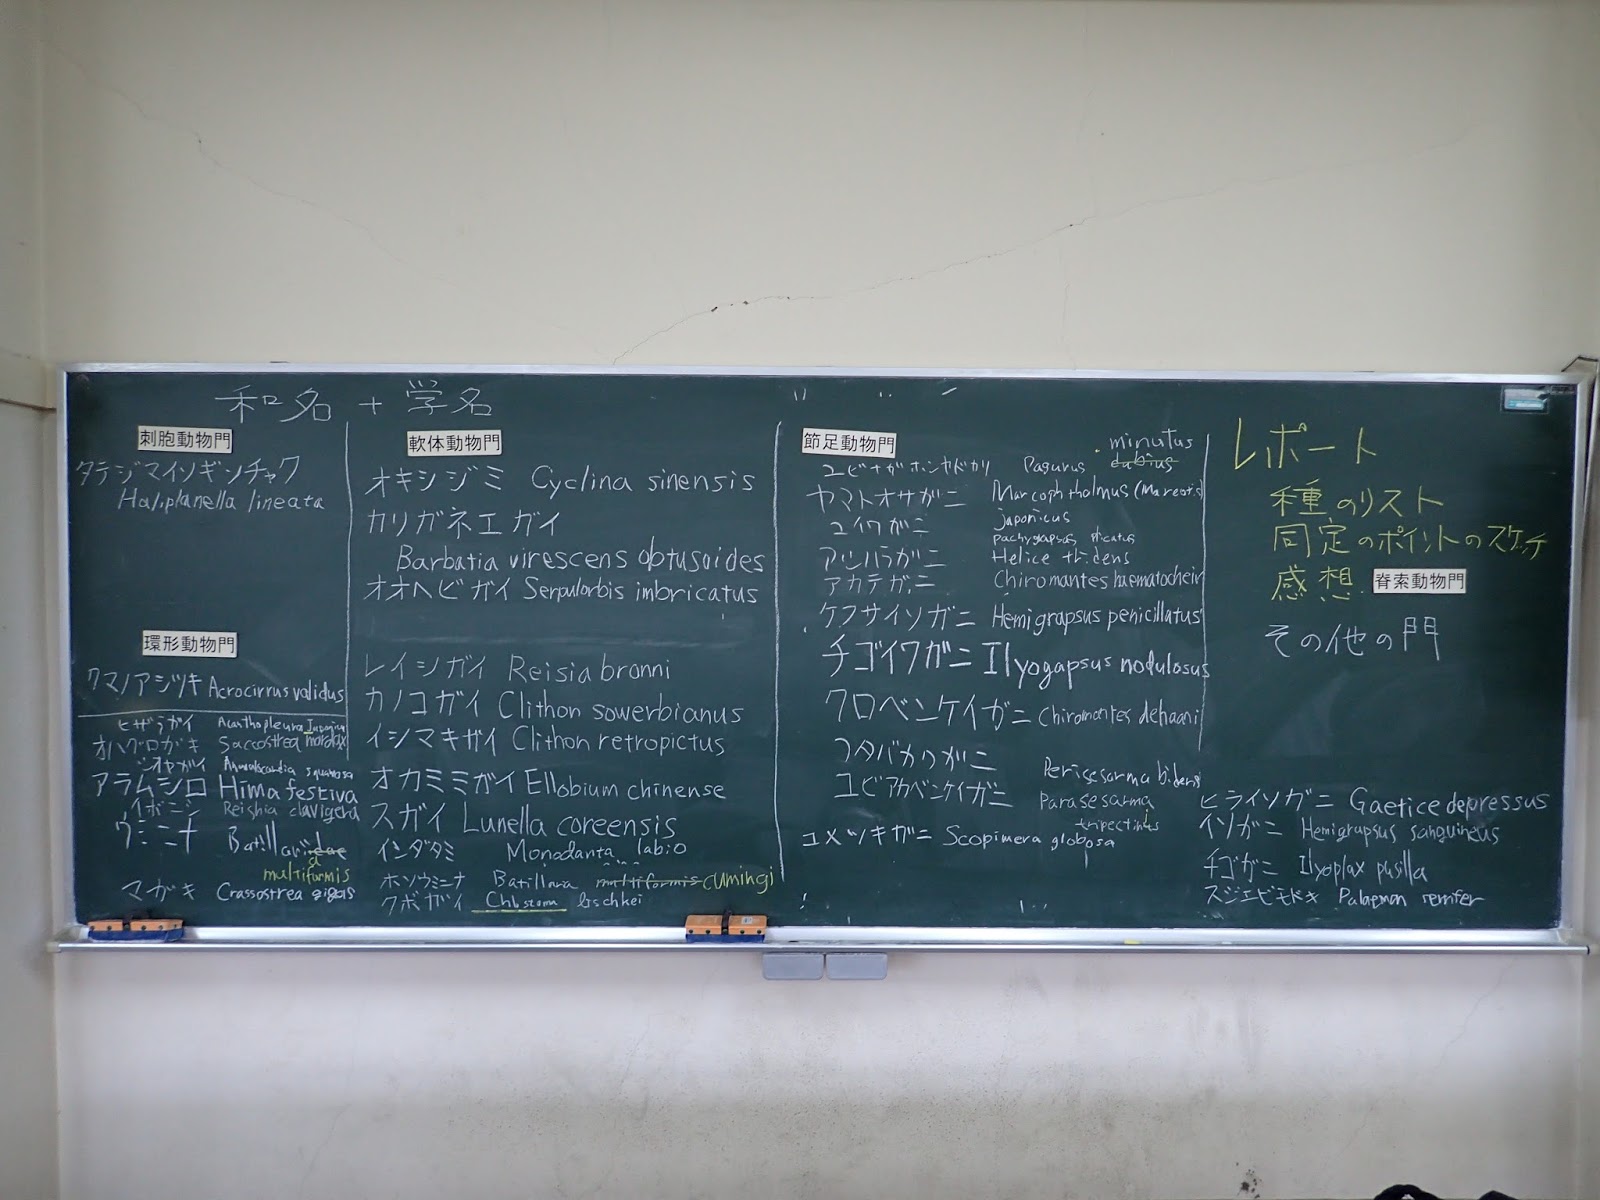 和名 + 学名
刺胞動物門
タテジマイソギンチャク
Haliplanella lineata
環形動物門
クマノアシツキ Acrocirrus validus
ヒザラガイ Acanthopleura Japonica
オハグロガキ Saccostrea mordax
シオヤガイ squamosa
アラムシロ Hima festiva
イボニシ Reishia clavigera
ウミニナ Batillaridae
a
multiformis
マガキ Crassostrea gigas
軟体動物門
オキシジミ Cyclina sinensis
カリガネエガイ
Barbatia virescens obtusoides
オオヘビガイ Serpulorbis imbricatus
レイシガイ Reisia bronni
カノコガイ Clithon sowerbianus
イシマキガイ Clithon retropictus
オカミミガイ Ellobium chinense
スガイ Lunella coreensis
イシダタミ Monodanta labio
ホソウミニナ Batillaria multiformis cumingi
クボガイ Chlostoma lischkei
節足動物門
minutus
ユビナガホンヤドカリ Pagurus dubius
ヤマトオサガニ Marcophthalmus (Mareotis)
japonicus
ユイワガニ pachygrapsus
アシハラガニ Helice tridens
アカテガニ Chiromantes haematocheir
ケフサイソガニ Hemigrapsus penicillatus
チゴイワガニ Ilyogapsus nodulosus
クロベンケイガニ Chiromantes dehaani
フタバカクガニ Perisesarma bidens
ユビアカベンケイガニ Parasesarma
tripectinus
コメツキガニ Scopimera globosa
レポート
種のリスト
同定のポイントのスケッチ
感想
脊索動物門
その他の門
ヒライソガニ Gaetice depressus
イソガニ Hemigrapsus sanguineus
チゴガニ Ilyoplax pusilla
スジエビモドキ Palaemon serrifer